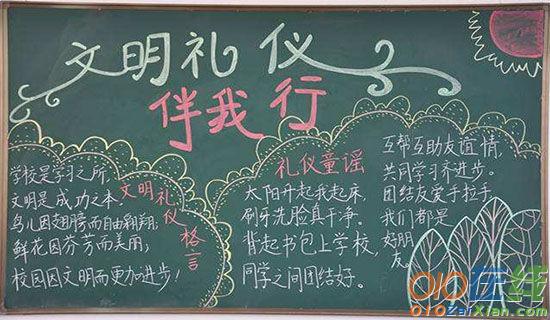 文明礼仪
伴我行
学校是学习之所,
文明是成功之本.
鸟儿因翅膀而自由翱翔,
鲜花因芬芳而美丽;
校园因文明而更加进步!
文明礼仪
格言
礼仪童谣
太阳升起我起床,
刷牙洗脸真干净.
背起书包上学校,
同学之间团结好.
互帮互助友谊情,
共同学习齐进步.
团结友爱手拉手,
我们都是
好朋友。
010在线
010ZaiXian.com